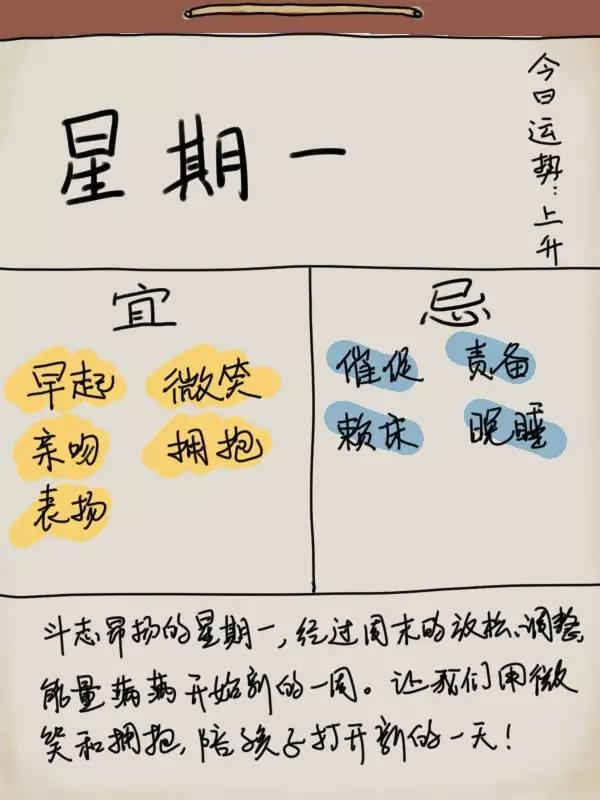 星期一
今日运势:上升
宜
早起 微笑
亲吻 拥抱
表扬
忌
催促 责备
赖床 晚睡
斗志昂扬的星期一,经过周末的放松、调整,
能量满满开始新的一周。让我们用微
笑和拥抱,陪孩子打开新的一天!